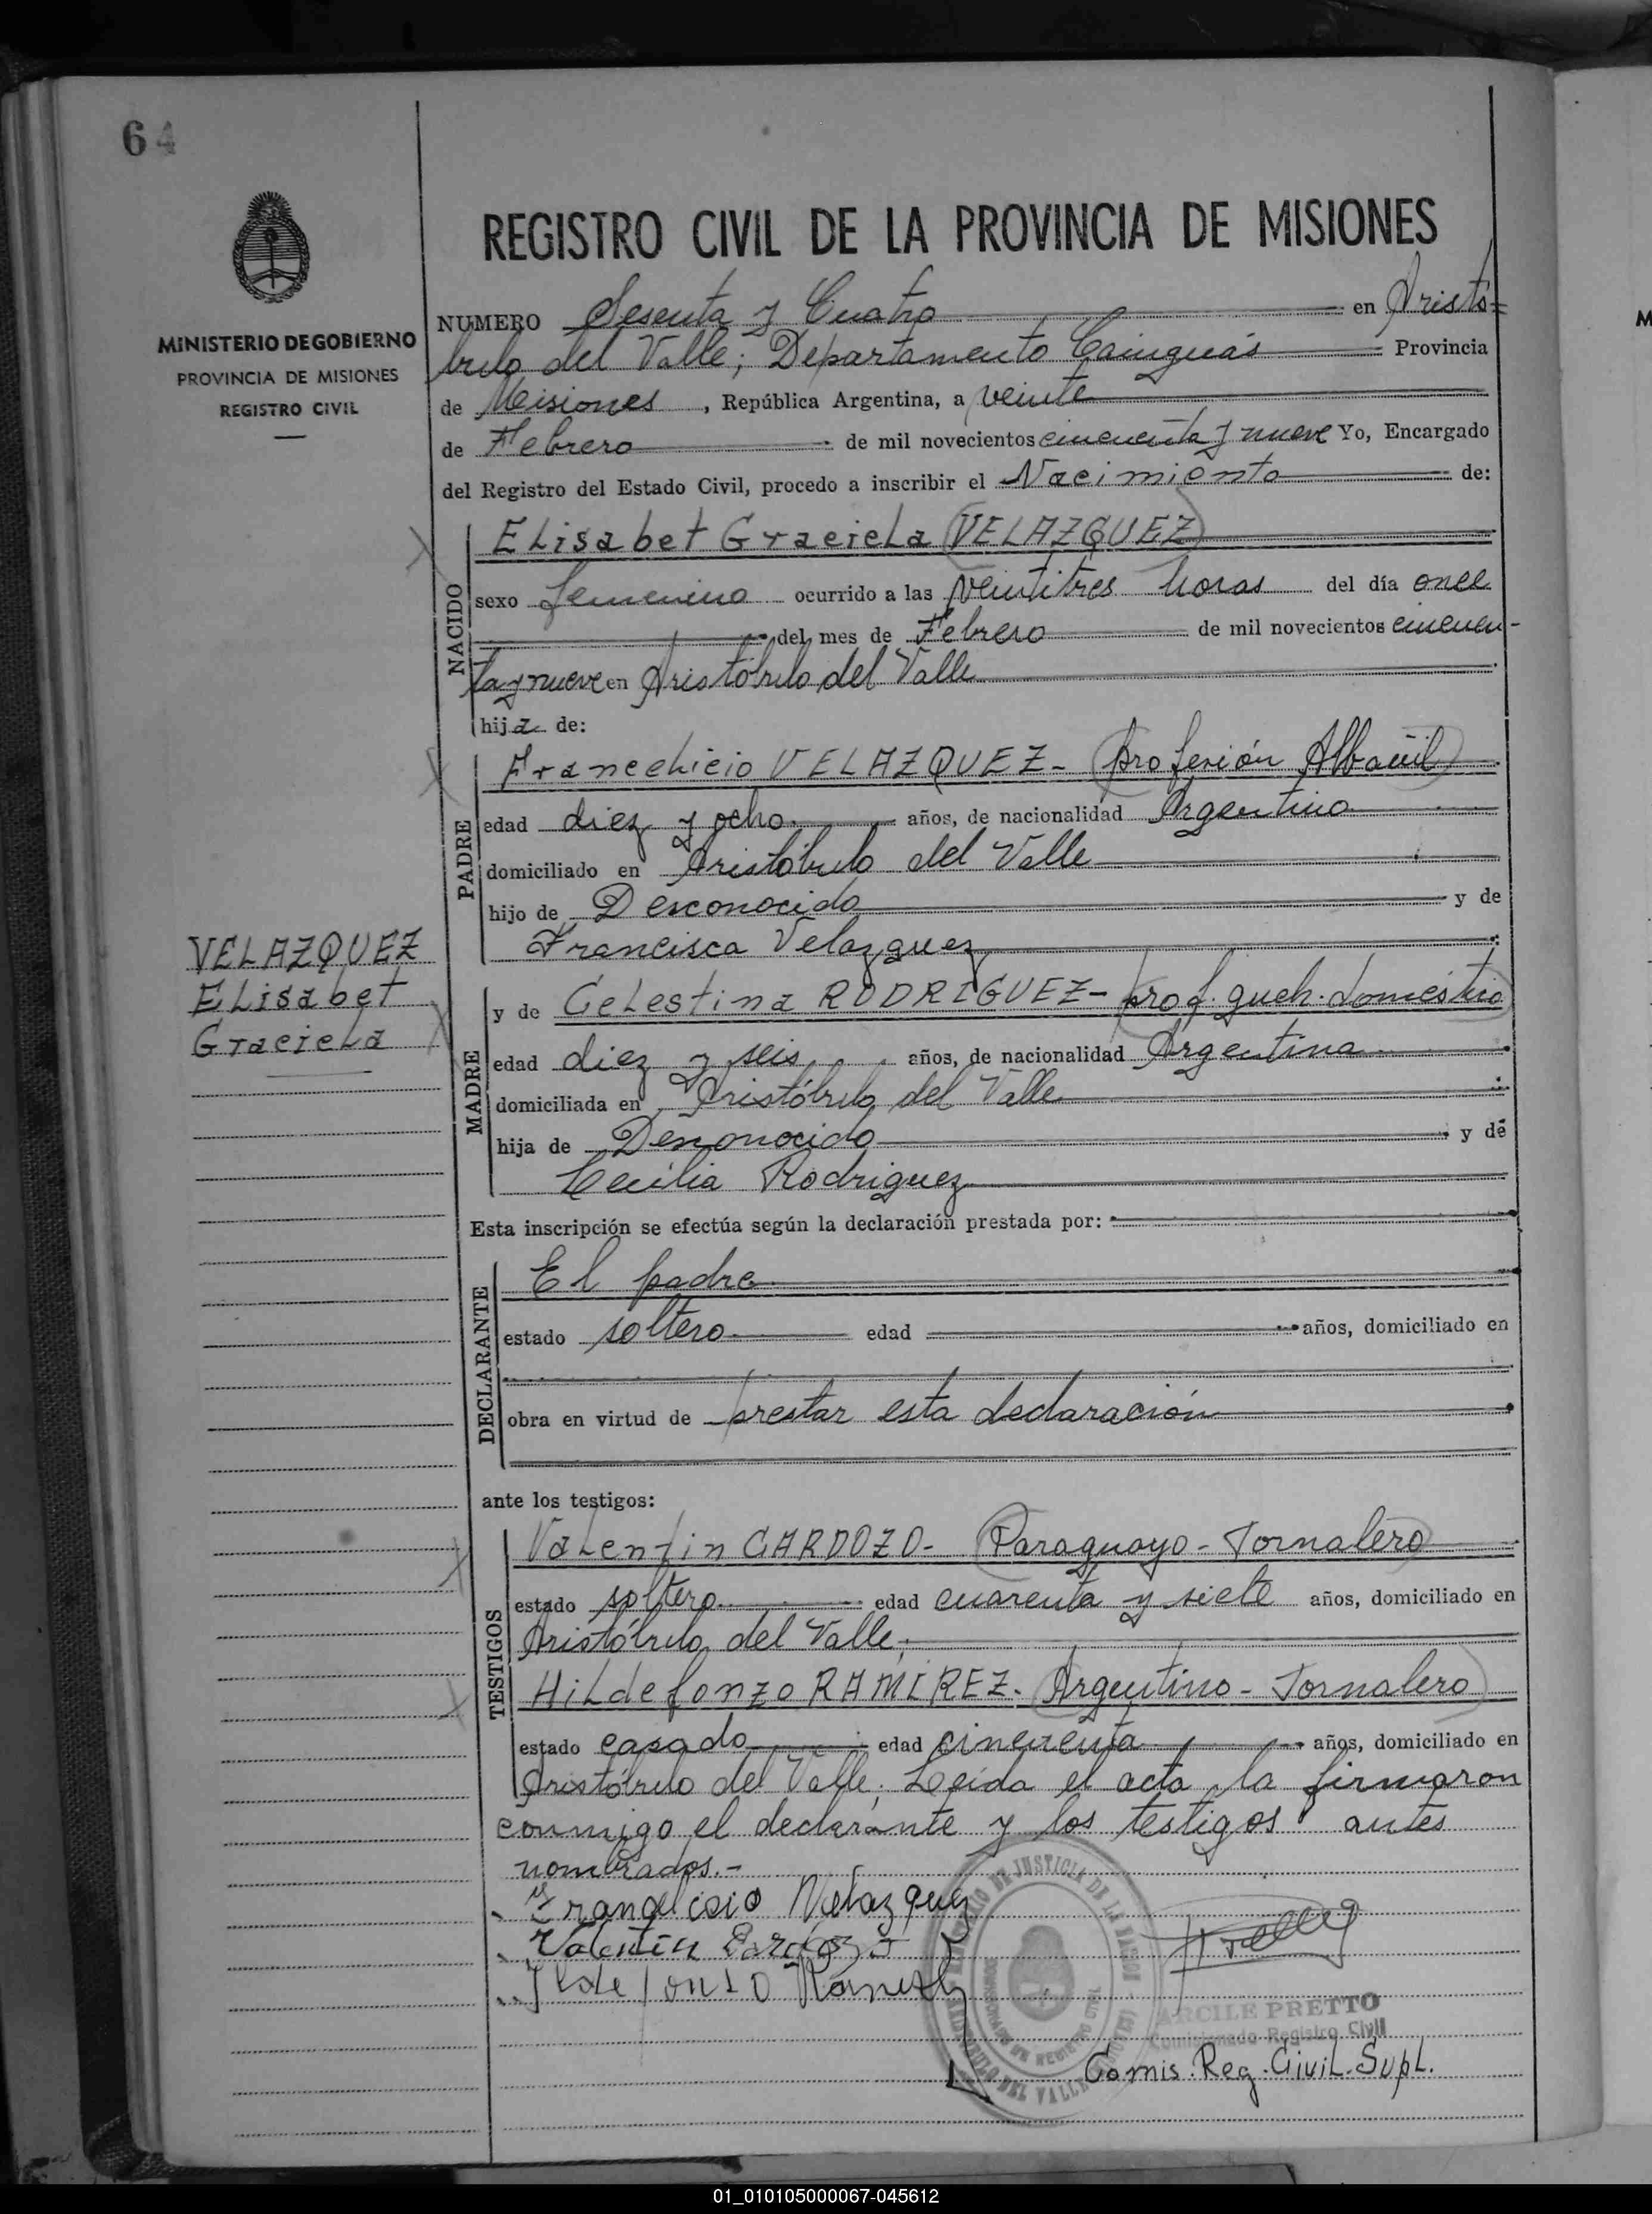 64
REGISTRO CIVIL DE LA PROVINCIA DE MISIONES
MINISTERIO DE GOBIERNO
PROVINCIA DE MISIONES
REGISTRO CIVIL
NUMERO Sesenta y Cuatro en Aristó=
bulo del Valle; Departamento Cainguás Provincia
de Misiones, República Argentina, a veinte
de Febrero de mil novecientos cincuenta y nueve Yo, Encargado
del Registro del Estado Civil, procedo a inscribir el Nacimiento de:
NACIDO
Elisabet Graciela (VELAZQUEZ)
sexo femenino ocurrido a las veintitres horas del día once
del mes de Febrero de mil novecientos cincuen-
ta y nueve en Aristóbulo del Valle
hija de:
PADRE
Franchicio VELAZQUEZ- (profesión Albañil)
edad diez y ocho años, de nacionalidad Argentino
domiciliado en Aristóbulo del Valle
hijo de Desconocido y de
Francisca Velazquez
VELAZQUEZ
Elisabet
Graciela
MADRE
y de Celestina RODRIGUEZ- (prof. queh. doméstico)
edad diez y seis años, de nacionalidad Argentina
domiciliada en Aristóbulo del Valle
hija de Desconocido y de
Cecilia Rodriguez
Esta inscripción se efectúa según la declaración prestada por:
DECLARANTE
El padre
estado soltero edad años, domiciliado en
obra en virtud de prestar esta declaración
ante los testigos:
TESTIGOS
Valentin CARDOZO- (Paraguayo - Jornalero)
estado soltero edad cuarenta y siete años, domiciliado en
Aristóbulo del Valle;
Hildefonzo RAMIREZ- (Argentino - Jornalero)
estado casado edad cincuenta años, domiciliado en
Aristóbulo del Valle; Leída el acta, la firmaron
conmigo el declarante y los testigos antes
nombrados.-
Velazquez
Valentin Cardozo
Ildefonso Ramirez
ARCILE PRETTO
Comisionado Registro Civil
Comis. Reg. Civil. Supl.
01_010105000067-045612